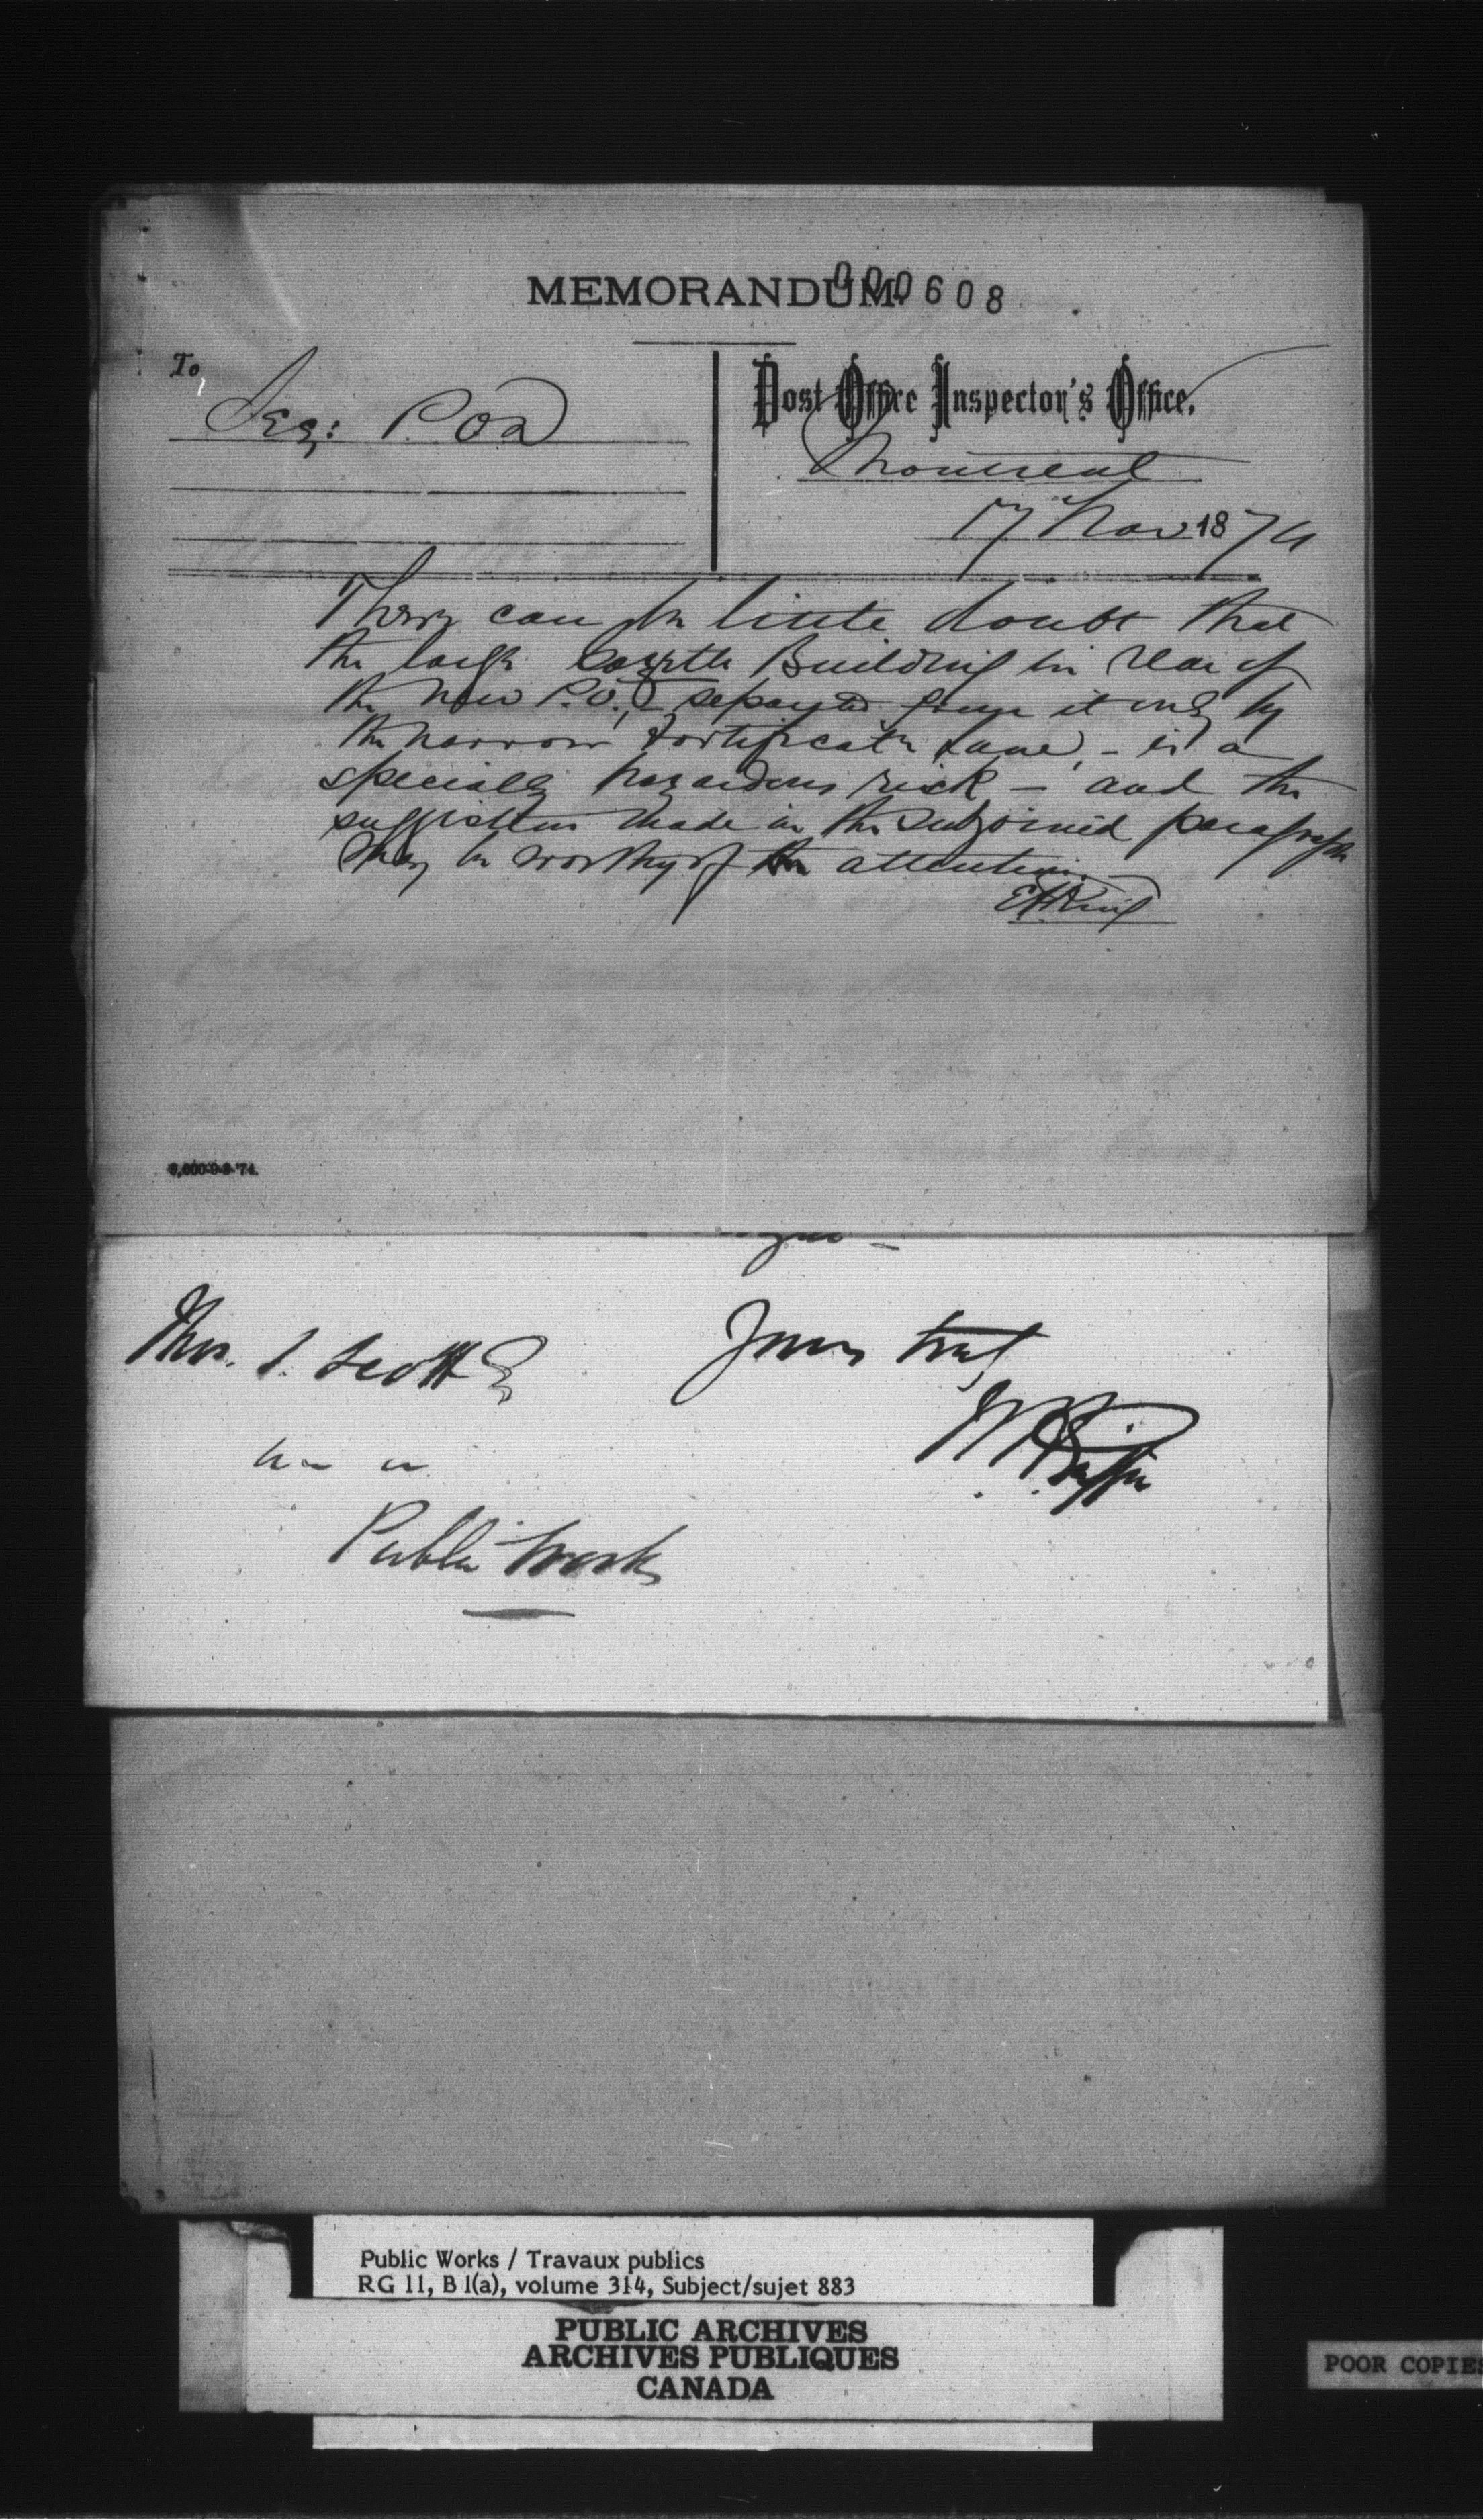 MEMORANDUM.
000608
To
Sec: P.O.D
Post Office Inspector's Office,
Montreal
17 Nov 1874
There can be little doubt that
the large Gazette Building in rear of
the New P.O., - separated from it only by
the narrow Fortification Lane, - is a
specially hazardous risk - and the
suggestion made in the subjoined paragraph
may be worthy of attention.
EHKing
6,000-9-3-'74.
Thos. S. Scott
Yours truly
W. H. Griffin
Public Works
Public Works / Travaux publics
RG 11, B 1(a), volume 314, Subject/sujet 883
PUBLIC ARCHIVES
ARCHIVES PUBLIQUES
CANADA
POOR COPIES